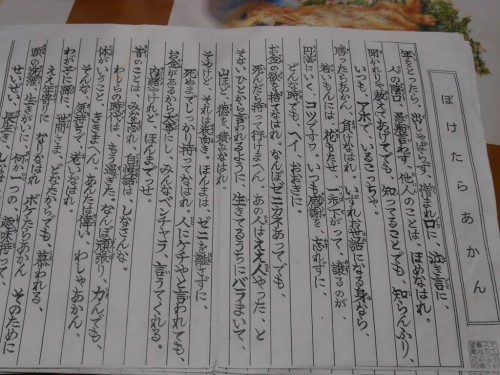 ぼけたらあかん
年をとったら、出しゃばらず、憎まれ口に、泣き言に、
人の陰口、愚痴言わず、他人のことは、ほめなはれ。
聞かれりゃ教えてあげてでも、知ってることでも、知らんふり、
いつも、アホで、いるこっちゃ。
勝ったらあかん、負けなはれ。いずれお世話になる身なら、
若いもんには、花もたせ、一歩下がって、譲るのが
円満にいく、コツですワ。いつも感謝を、忘れずに、
どんな時でも、へイ、おおきに。
お金の欲を、捨てなはれ。なんぼゼニカネあってでも、
死んだら持って行けまへん。あの人はええ人やった、と
そない、ひとから言われるように、生きてるうちにバラまいて、
山ほど、徳を、積みなはれ。
そやけど、それは表向き。ほんまは、ゼニを離さずに、
死ぬまで、しっかり持ってなはれ。人にケチやと言われても、
お金があるから大事にし、みんなベンチャラ、言うてくれる。
内緒やけれど、ほんまでっせ。
昔のことは、みな忘れ、自慢話は、しなさんな。
わしらの時代は、もう過ぎた。なんぼ頑張り、力んでも、
体がいうこと、ききまへん。あんたは偉い、わしゃあかん、
そんな、気持ちで、老いなはれ。
わが子に孫に、世間さま、どなたからでも、慕われる、
ええ年寄りに、なりなはれ。ボケたらあかん、そのために
頭の洗濯、生きがいに、何か一つの、趣味持って、
せいぜい、長生き、しなはれ